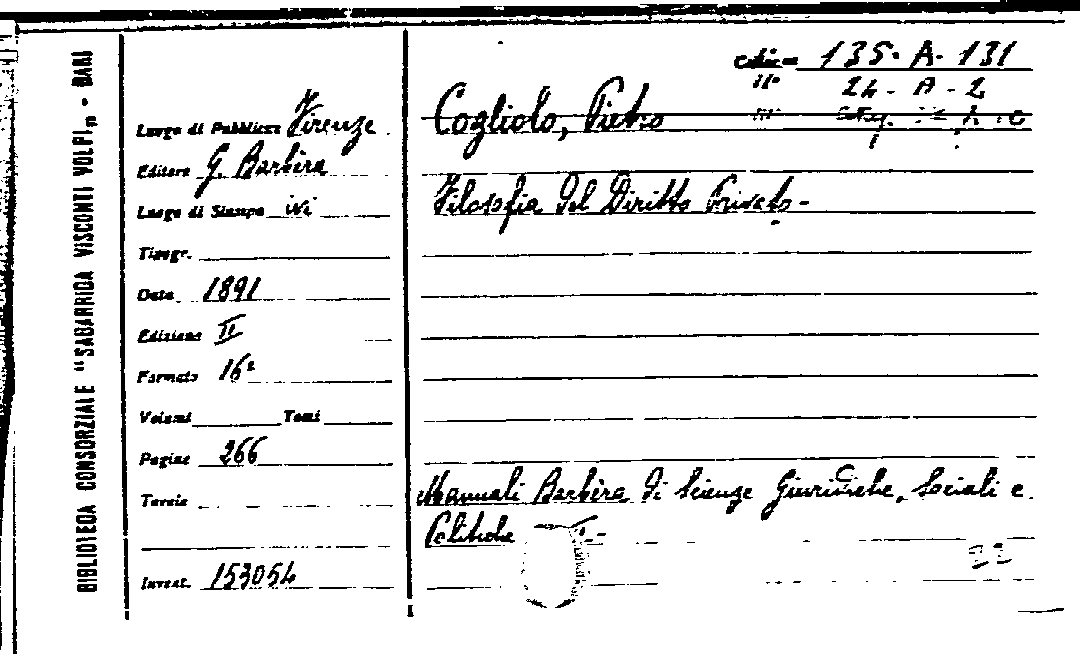 BIBLIOTECA CONSORZIALE "SAGARRIGA VISCONTI VOLPI" - BARI
Luogo di Pubblicaz Firenze
Editore G. Barbèra
Luogo di Stampa ivi
Tipogr.
Data 1891
Edizione II
Formato 16°
Volumi Tomi
Pagine 266
Tavole
Invent. 153054
135 - A - 131
24 - A - 2
Cogliolo, Pietro
Filosofia del Diritto Privato -
Manuali Barbèra di Scienze Giuridiche, Sociali e
Politiche
22